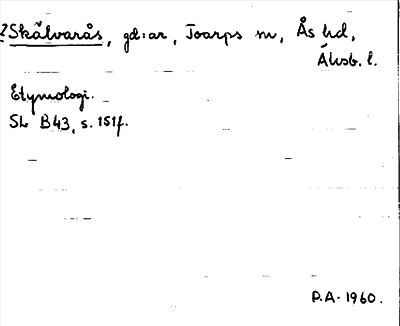 ?Skälvarås, gd:ar, Toarps sn, Ås hd,
Älvsb. l.
Etymologi.
SL B43, s. 151f.
P.A. 1960.